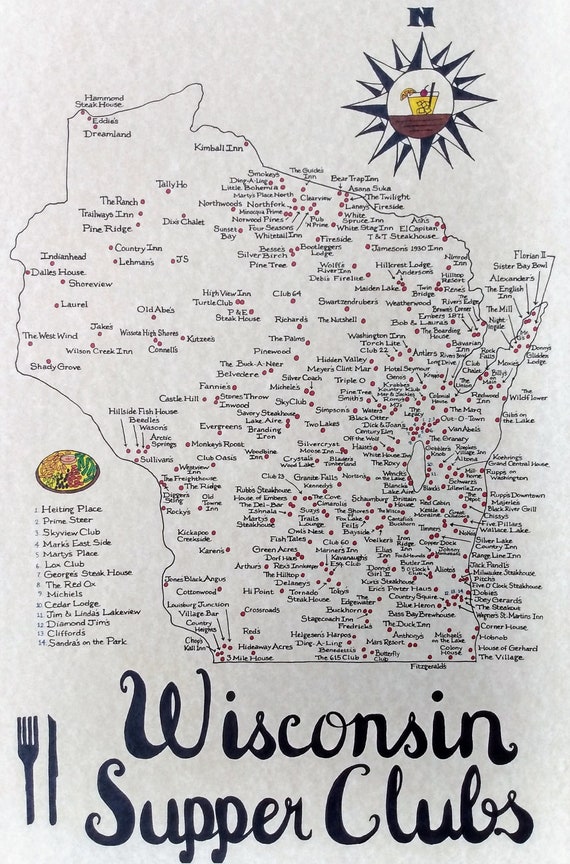 N
Hammond
Steak House
Eddie's
Dreamland
Kimball Inn
Smokeys
Ding-A-Ling
Little Bohemia
Marty's Place North
The Guides
Inn
Clearview
Bear Trap Inn
Asana Suka
The Twilight
Laneys Fireside
Tally Ho
The Ranch
Trailways Inn
Pine Ridge
Dixs Chalet
Northwoods
Northfork
Minocqua Prime
Norwood Pines
Pub
'N Prime
White
Spruce Inn
White Stag Inn
Sunset
Bay
Four Seasons
Whitetail Inn
Fireside
Ashs
El Capitan
T&T Steakhouse
Country Inn
Lehman's
JS
Besses
Silver Birch
Pine Tree
Bootleggers
Lodge
Jamesons 1930 Inn
Nimrod
Inn
Florian II
Sister Bay Bowl
Alexanders
The English
Inn
The Mill
Indianhead
Dalles House
Shoreview
Laurel
Wolff's
River Inn
Debis Firelite
Hillcrest Lodge
Andersons
Maiden Lake
Twin
Bridge
Hilltop
Resort
Rene's
High View Inn
Turtle Club
P&E
Steak House
Club 64
Swartzendrubers
Weatherwood
The Rivers
Edge
Embers 1871
Bob & Lauras
Night
ingale
Old Abe's
Richards
The Nutshell
The Boarding
House
The West Wind
Jake's
Wissota High Shores
Kutzee's
The Palms
Washington Inn
Torch Lite
Club 22
Antlers
Bavarian
Inn
River Bend
Long Drive
Rock
Falls
Donny's
Glidden
Lodge
Wilson Creek Inn
Connell's
Pinewood
Hidden Valley
Hotel Seymour
Chalet
Shady Grove
The Buck-A-Neer
Belvedere
Meyer's Clint Mar
Genos
The
Union
Redwood
Inn
Wildflower
Fannies
Michels
Silver Coach
Triple O
Krabbes
Kountry Klub
Mar & Jackies
Colonial
House
Castle Hill
Stones Throw
Inwood
Sky Club
Pine Tree
Smiths
The
Legacy
The Marq
Out-O-Town
Gibs on
the Lake
Hillside Fish House
Beedles
Wasons
Arctic
Springs
Sullivans
Savory Steakhouse
Simpsons
Waters
Black Otter
VanAbels
Evergreen
Lake Aire
Branding
Iron
Two Lakes
Dick & Joan's
Century Elm
The Granary
Off the Wolf
Monkeys Roost
Silvercryst
Altona
Kochring's
Grand Central House
Club Oasis
Woodbine
Inn
Haase's
Westview
Inn
The Freighthouse
The Ridge
Moose
Inn
Crystals
Wood Lake
Blaisers
Timberland
White House
Inn
The Roxy
Wendts
Mill
House
Rupps on
Washington
Diggers
Sting
Old
Towne
Inn
Rocky's
Club 23
Granite Falls
Kennedy's
Blanck's
Lake Aire
Blacks
Lilewila Inn
Rupps Downtown
Majerles
Black River Grill
Rubbs Steakhouse
House of Embers
The Del-Bar
Ishnala
Marty's
Steakhouse
The Cove
Cimarolis
Schaumburg
Britten
House
Red Cabin
Kettle
Chissys
Five Pillars
Wallace Lake
Suzys
Trails
Lounge
Fox Lake
Feils
The Shores
Castaflou's
Buckhorn
Tinneys
Nobles
Kickapoo
Creekside
Owls Nest
Bayside
Fish Tales
Club 60
Voelkers
Iron
Ridge
Inn
Copper Dock
Johnny
Silver Lake
Country Inn
Range Line Inn
Karen's
Green Acres
Dorf Haus
Mariners Inn
Elias
Inn
Jack Pandl's
Milwaukee Steakhouse
Pitch's
Five O'Clock Steakhouse
Dobies
Joey Gerards
The Steakout
Arthur's
Rex's Innkeeper
Kavanaughs
Esq. Club
Dorny's
Girl II
Butler
Inn
5 O'clock
Club
Alioto's
Jones Black Angus
Cottonwood
Hi Point
The Hilltop
Delaney's
Tornado
Kurts Steakhouse
Eric's Porter Haus
Country Squire
Tobys
Steak House
Blue Heron
11 12 13 14
Wagner's St. Martins Inn
Lousburg Junction
Village Bar
Country
Heights
The
Edgewater
Buckhorn
Bass Bay Brewhouse
Corner House
Hobnob
House of Gerhard
The Village
Crossroads
Stagecoach Inn
Fredrick's
The Duck Inn
Reds
Helgesen's Harpos
Ding-A-Ling
Benedetti's
The 615 Club
Anthony's
Mars Resort
Butterfly
Club
Michael's
on the Lake
Colony
House
Chop's
Kall Inn
Hideaway Acres
3 Mile House
Fitzgerald's
1 Heiting Place
2 Prime Steer
3 Skyview Club
4 Mark's East Side
5 Martys Place
6 Lox Club
7 George's Steak House
8 The Red Ox
9 Michiels
10 Cedar Lodge
11 Jim & Linda's Lakeview
12 Diamond Jim's
13 Cliffords
14 Sandra's on the Park
Wisconsin
Supper Clubs